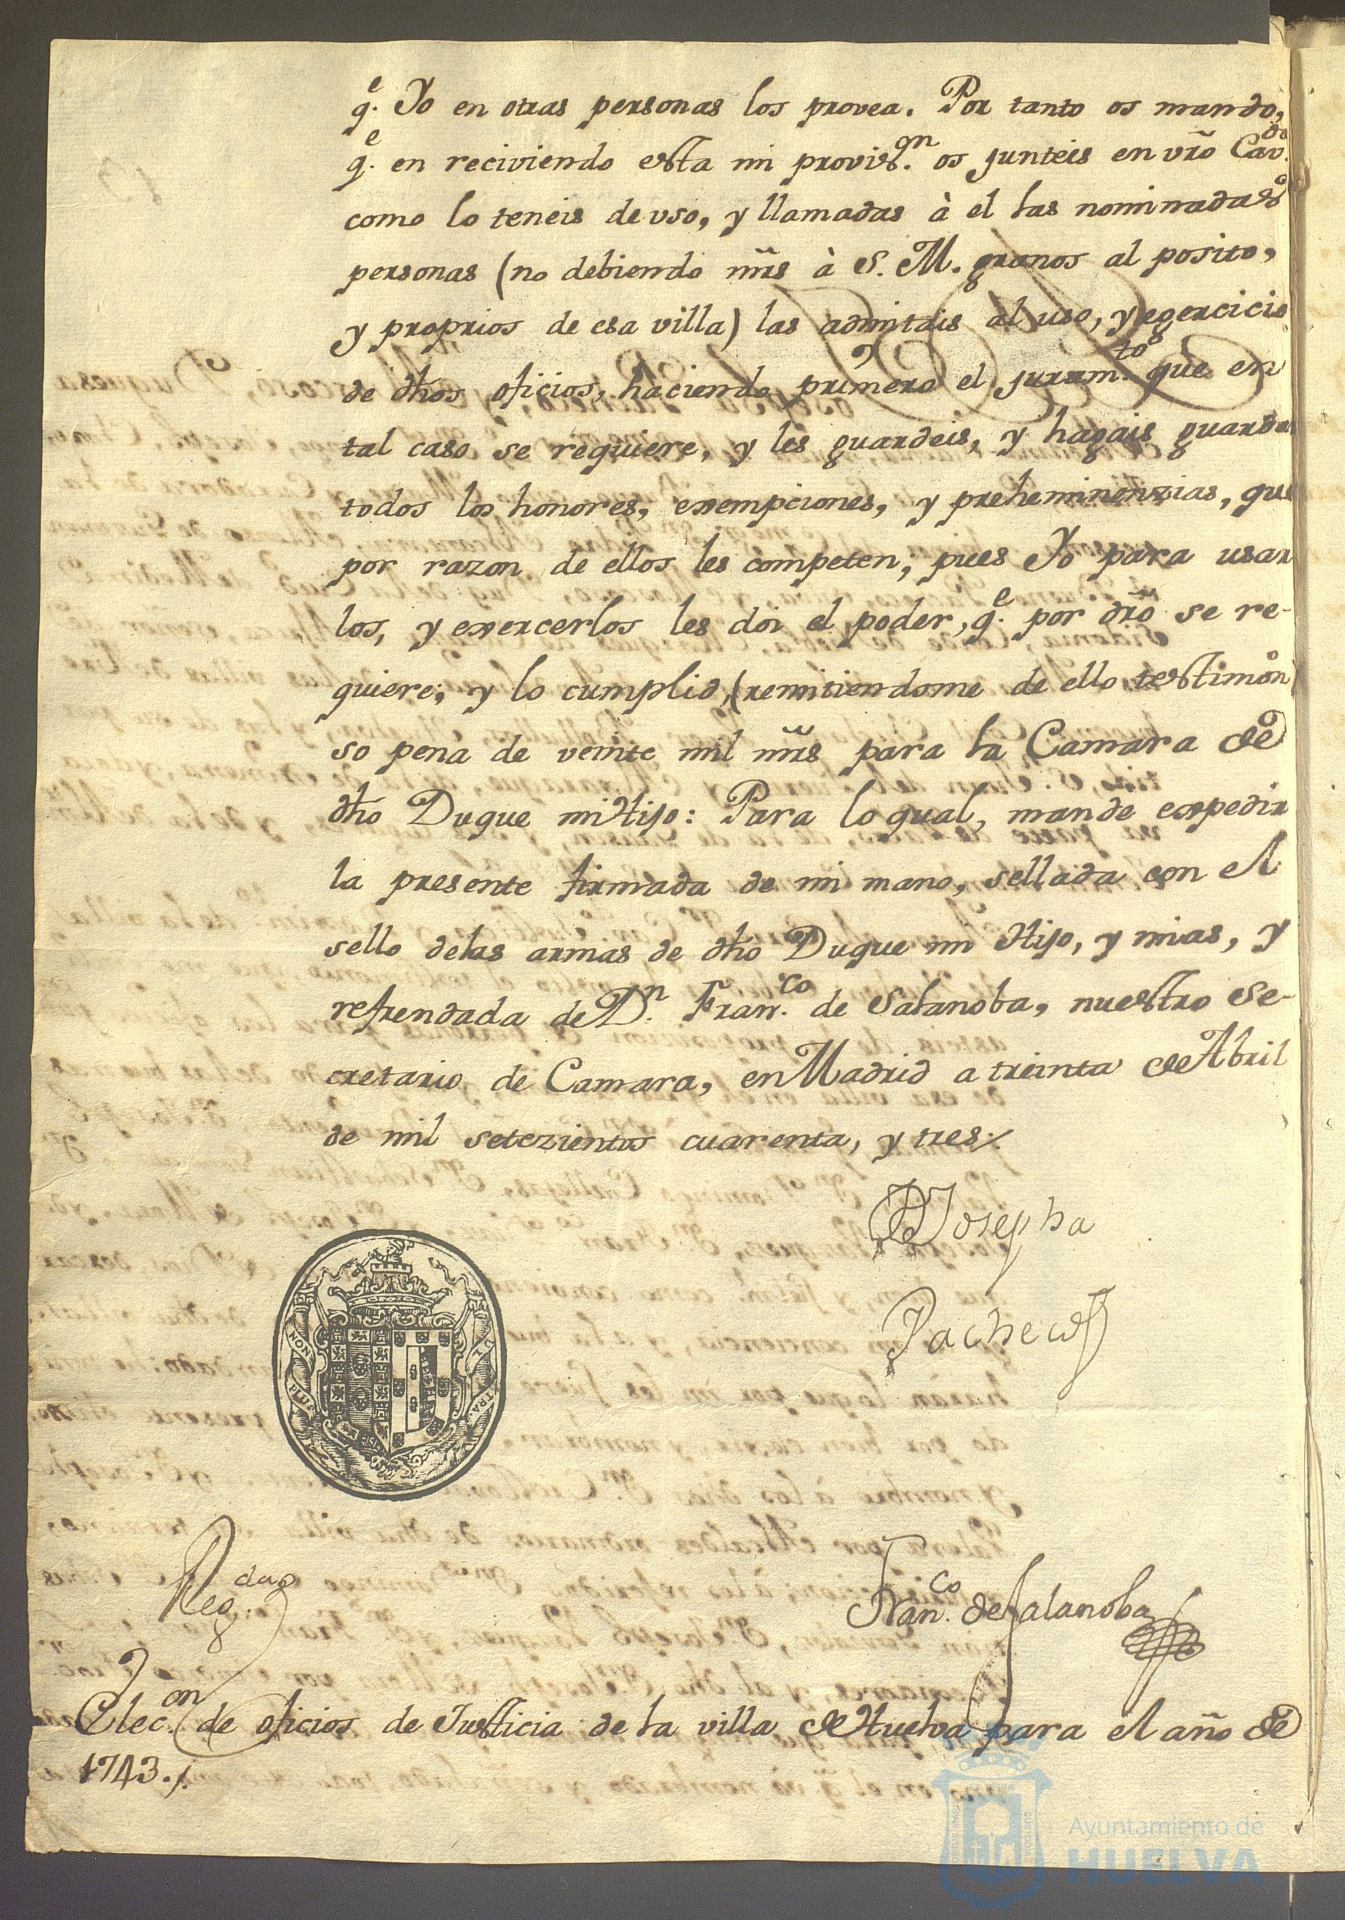 q.e Yo en otras personas los provea. Por tanto os mando,
q.e en reciviendo esta mi provis.on os junteis en vrō Cav.do
como lo teneis de uso, y llamadas à el las nominadas
personas (no debiendo mrs à S. M. granos al posito,
y proprios de esa villa) las admitais al uso, y egercicio
de dhos oficios, haciendo primero el juram.to que en
tal caso se requiere, y les guardeis, y hagais guardar
todos los honores, exempciones, y preheminenzias, que
por razon de ellos les competen; pues Yo para usar
los, y exercerlos les doi el poder, q.e por drō se re-
quiere; y lo cumplid, (remitiendome de ello testimon.o)
so pena de veinte mil mrs para la Camara de
dho Duque mi Hijo: Para lo qual, mande expedir
la presente firmada de mi mano, sellada con el
sello de las armas de dho Duque mi Hijo, y mias, y
refrendada de D.n Fran.co de Salanoba, nuestro Se-
cretario de Camara, en Madrid a treinta de Abril
de mil setezientos cuarenta, y tres
Josepha
Pacheco
NON PLUS ULTRA
Reg.da
Fran.co de Salanoba
Elec.on de oficios de Justicia de la villa de Huelva para el año de
1743.
Ayuntamiento de
HUELVA